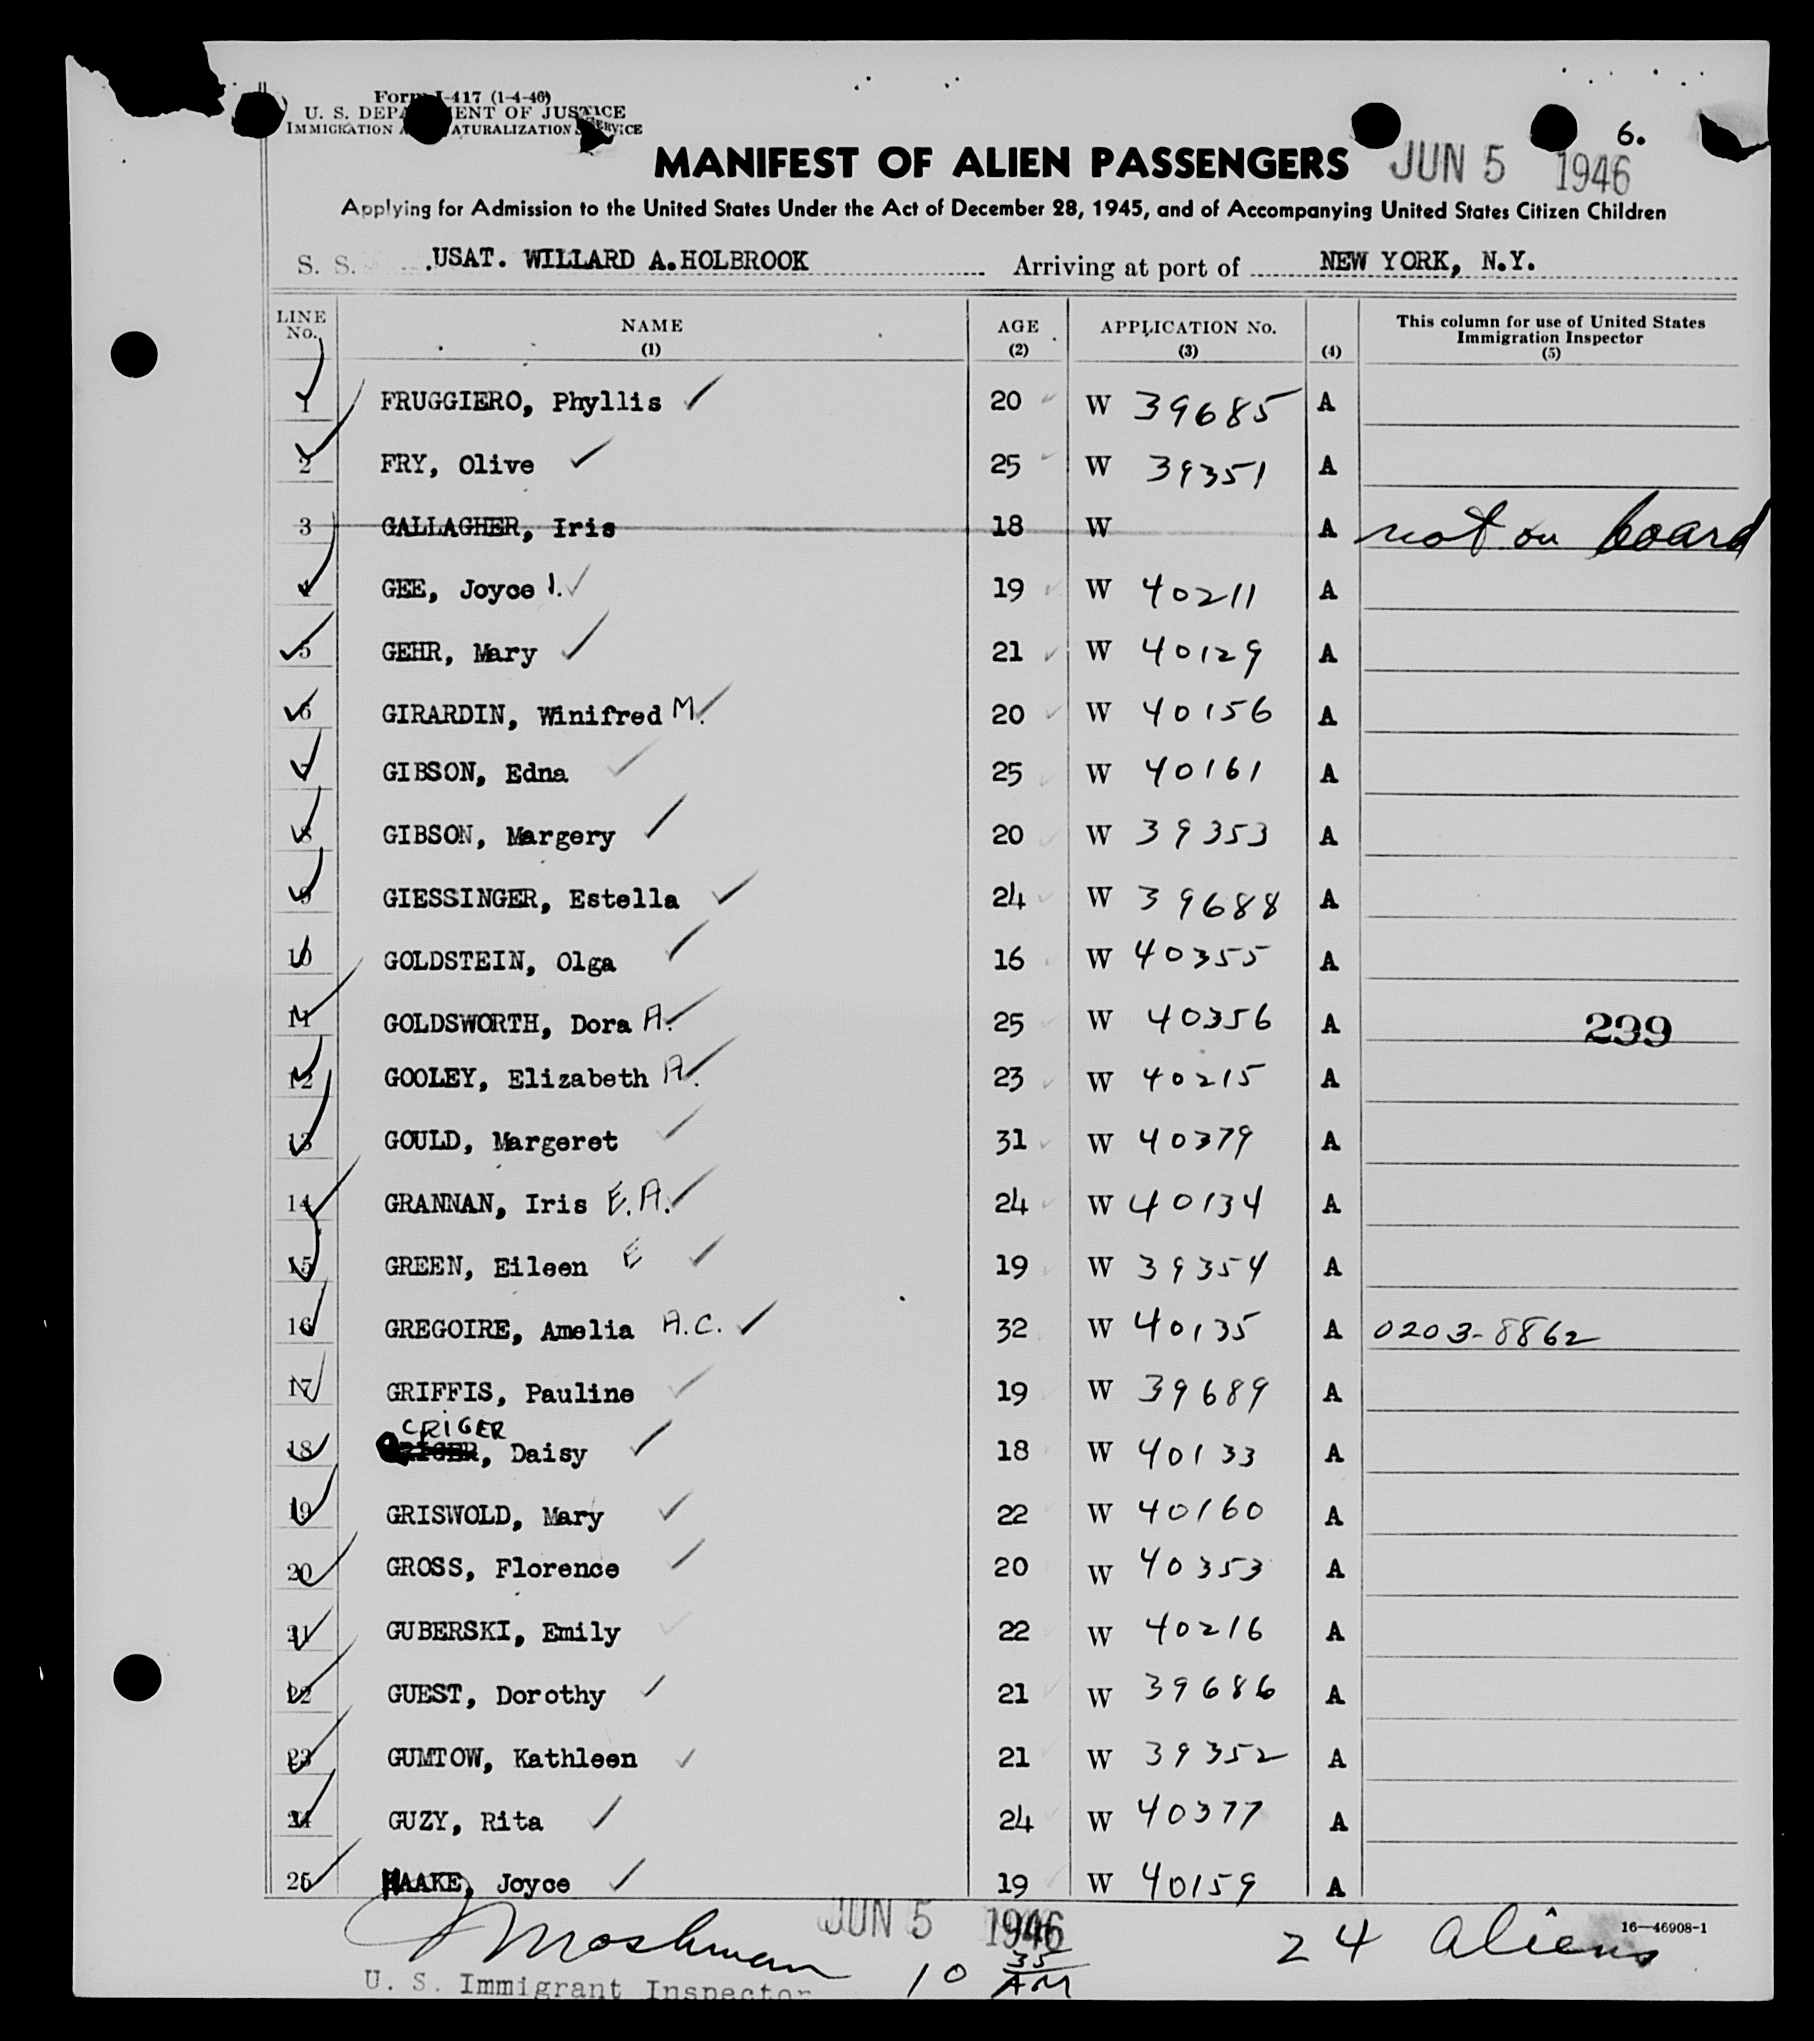 Form I-417 (1-4-46)
U. S. DEPARTMENT OF JUSTICE
IMMIGRATION AND NATURALIZATION SERVICE
6.
MANIFEST OF ALIEN PASSENGERS JUN 5 1946
Applying for Admission to the United States Under the Act of December 28, 1945, and of Accompanying United States Citizen Children
S. S. USAT. WILLARD A.HOLBROOK Arriving at port of NEW YORK, N.Y.
LINE No. NAME (1) AGE (2) APPLICATION No. (3) (4) This column for use of United States Immigration Inspector (5)
1 FRUGGIERO, Phyllis 20 W 39685 A
2 FRY, Olive 25 W 39351 A
3 GALLAGHER, Iris 18 W A not on board
4 GEE, Joyce I. 19 W 40211 A
5 GEHR, Mary 21 W 40129 A
6 GIRARDIN, Winifred M. 20 W 40156 A
7 GIBSON, Edna 25 W 40161 A
8 GIBSON, Margery 20 W 39353 A
9 GIESSINGER, Estella 24 W 39688 A
10 GOLDSTEIN, Olga 16 W 40355 A
11 GOLDSWORTH, Dora A. 25 W 40356 A 299
12 GOOLEY, Elizabeth A. 23 W 40215 A
13 GOULD, Margeret 31 W 40379 A
14 GRANNAN, Iris E.A. 24 W 40134 A
15 GREEN, Eileen E 19 W 39354 A
16 GREGOIRE, Amelia A.C. 32 W 40135 A 0203-8862
17 GRIFFIS, Pauline 19 W 39689 A
CRIGER
18 , Daisy 18 W 40133 A
19 GRISWOLD, Mary 22 W 40160 A
20 GROSS, Florence 20 W 40353 A
21 GUBERSKI, Emily 22 W 40216 A
22 GUEST, Dorothy 21 W 39686 A
23 GUMTOW, Kathleen 21 W 39352 A
24 GUZY, Rita 24 W 40377 A
25 HAAKE, Joyce 19 W 40159 A
JUN 5 1946 24 aliens 16—46908-1
Moshman 10 35 AM
U. S. Immigrant Inspector